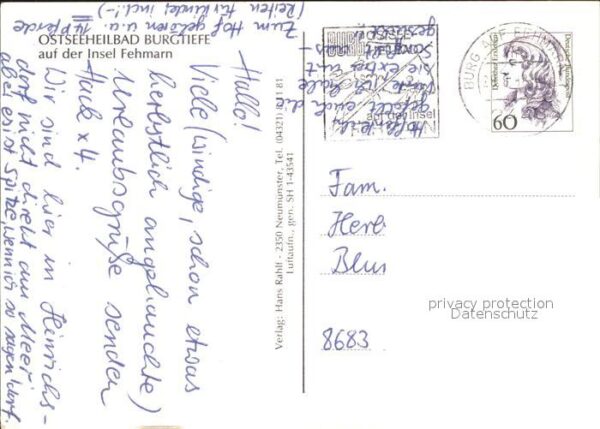 OSTSEEHEILBAD BURGTIEFE
auf der Insel Fehmarn
Hallo!
Viele (windige, schon etwas
herbstlich angehauchte)
Urlaubsgrüße senden
x 4.
Wir sind hier in Heinrichs-
dorf nicht direkt am Meer
aber es ist Spitze, wenn ich so sagen darf.
Zum Hof gehören u. a. 14 Pferde
(Reiten für Kinder incl.!-)
Hoffentlich
gefällt euch die
Karte. Ich habe
sie extra mit
Sorgfalt aus-
gesucht.
Verlag: Hans Rahlf - 2350 Neumünster, Tel. (04321) 8 11 81
Luftaufn., gen. SH 1-43541
auf der Insel
BURG AUF FEHMARN
Deutsche Bundespost
60
Fam.
Herb
Blus
8683
privacy protection
Datenschutz